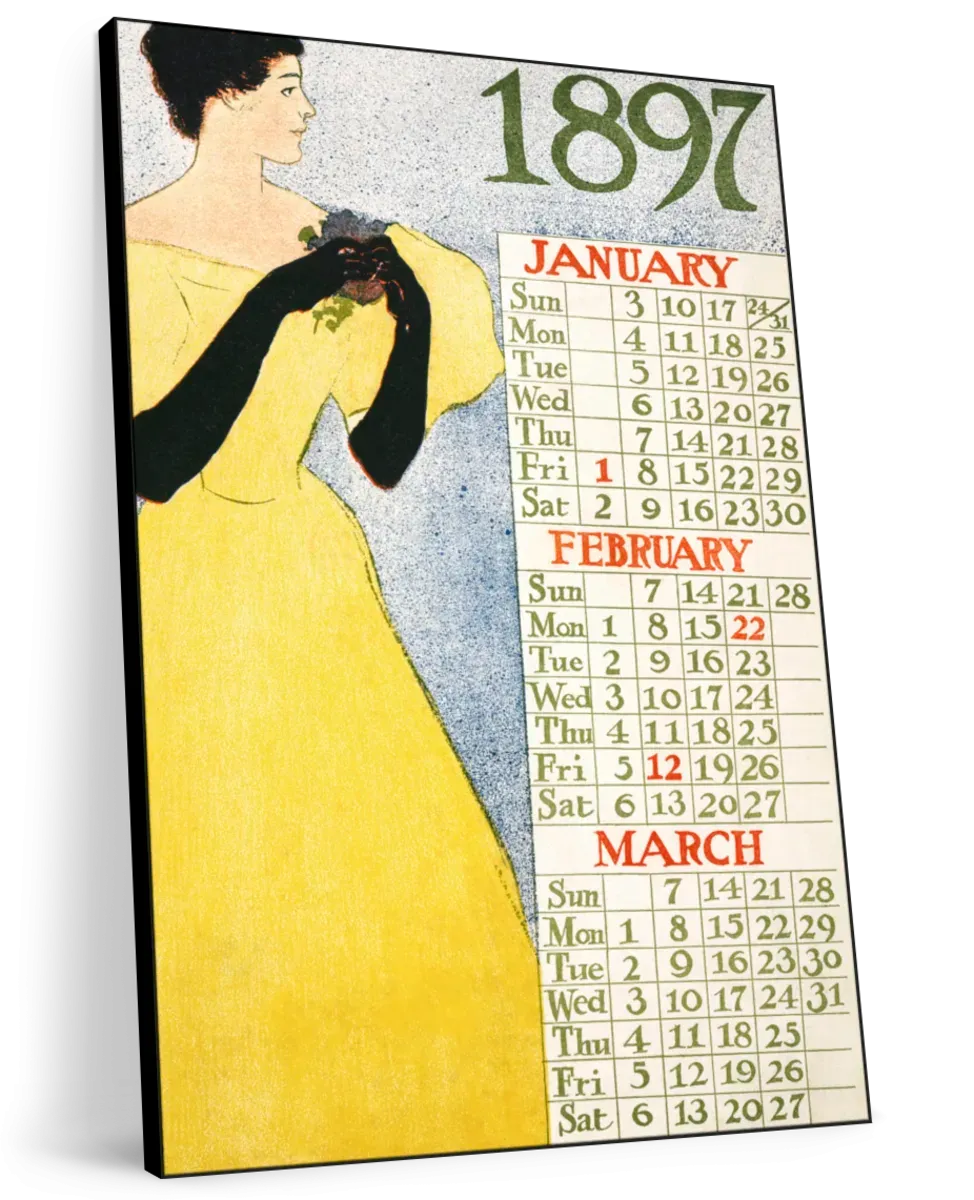 1897
JANUARY
Sun 3 10 17 24/31
Mon 4 11 18 25
Tue 5 12 19 26
Wed 6 13 20 27
Thu 7 14 21 28
Fri 1 8 15 22 29
Sat 2 9 16 23 30
FEBRUARY
Sun 7 14 21 28
Mon 1 8 15 22
Tue 2 9 16 23
Wed 3 10 17 24
Thu 4 11 18 25
Fri 5 12 19 26
Sat 6 13 20 27
MARCH
Sun 7 14 21 28
Mon 1 8 15 22 29
Tue 2 9 16 23 30
Wed 3 10 17 24 31
Thu 4 11 18 25
Fri 5 12 19 26
Sat 6 13 20 27